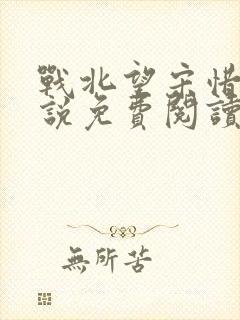 戰北望宋惜
說免費閱讀
無所苦